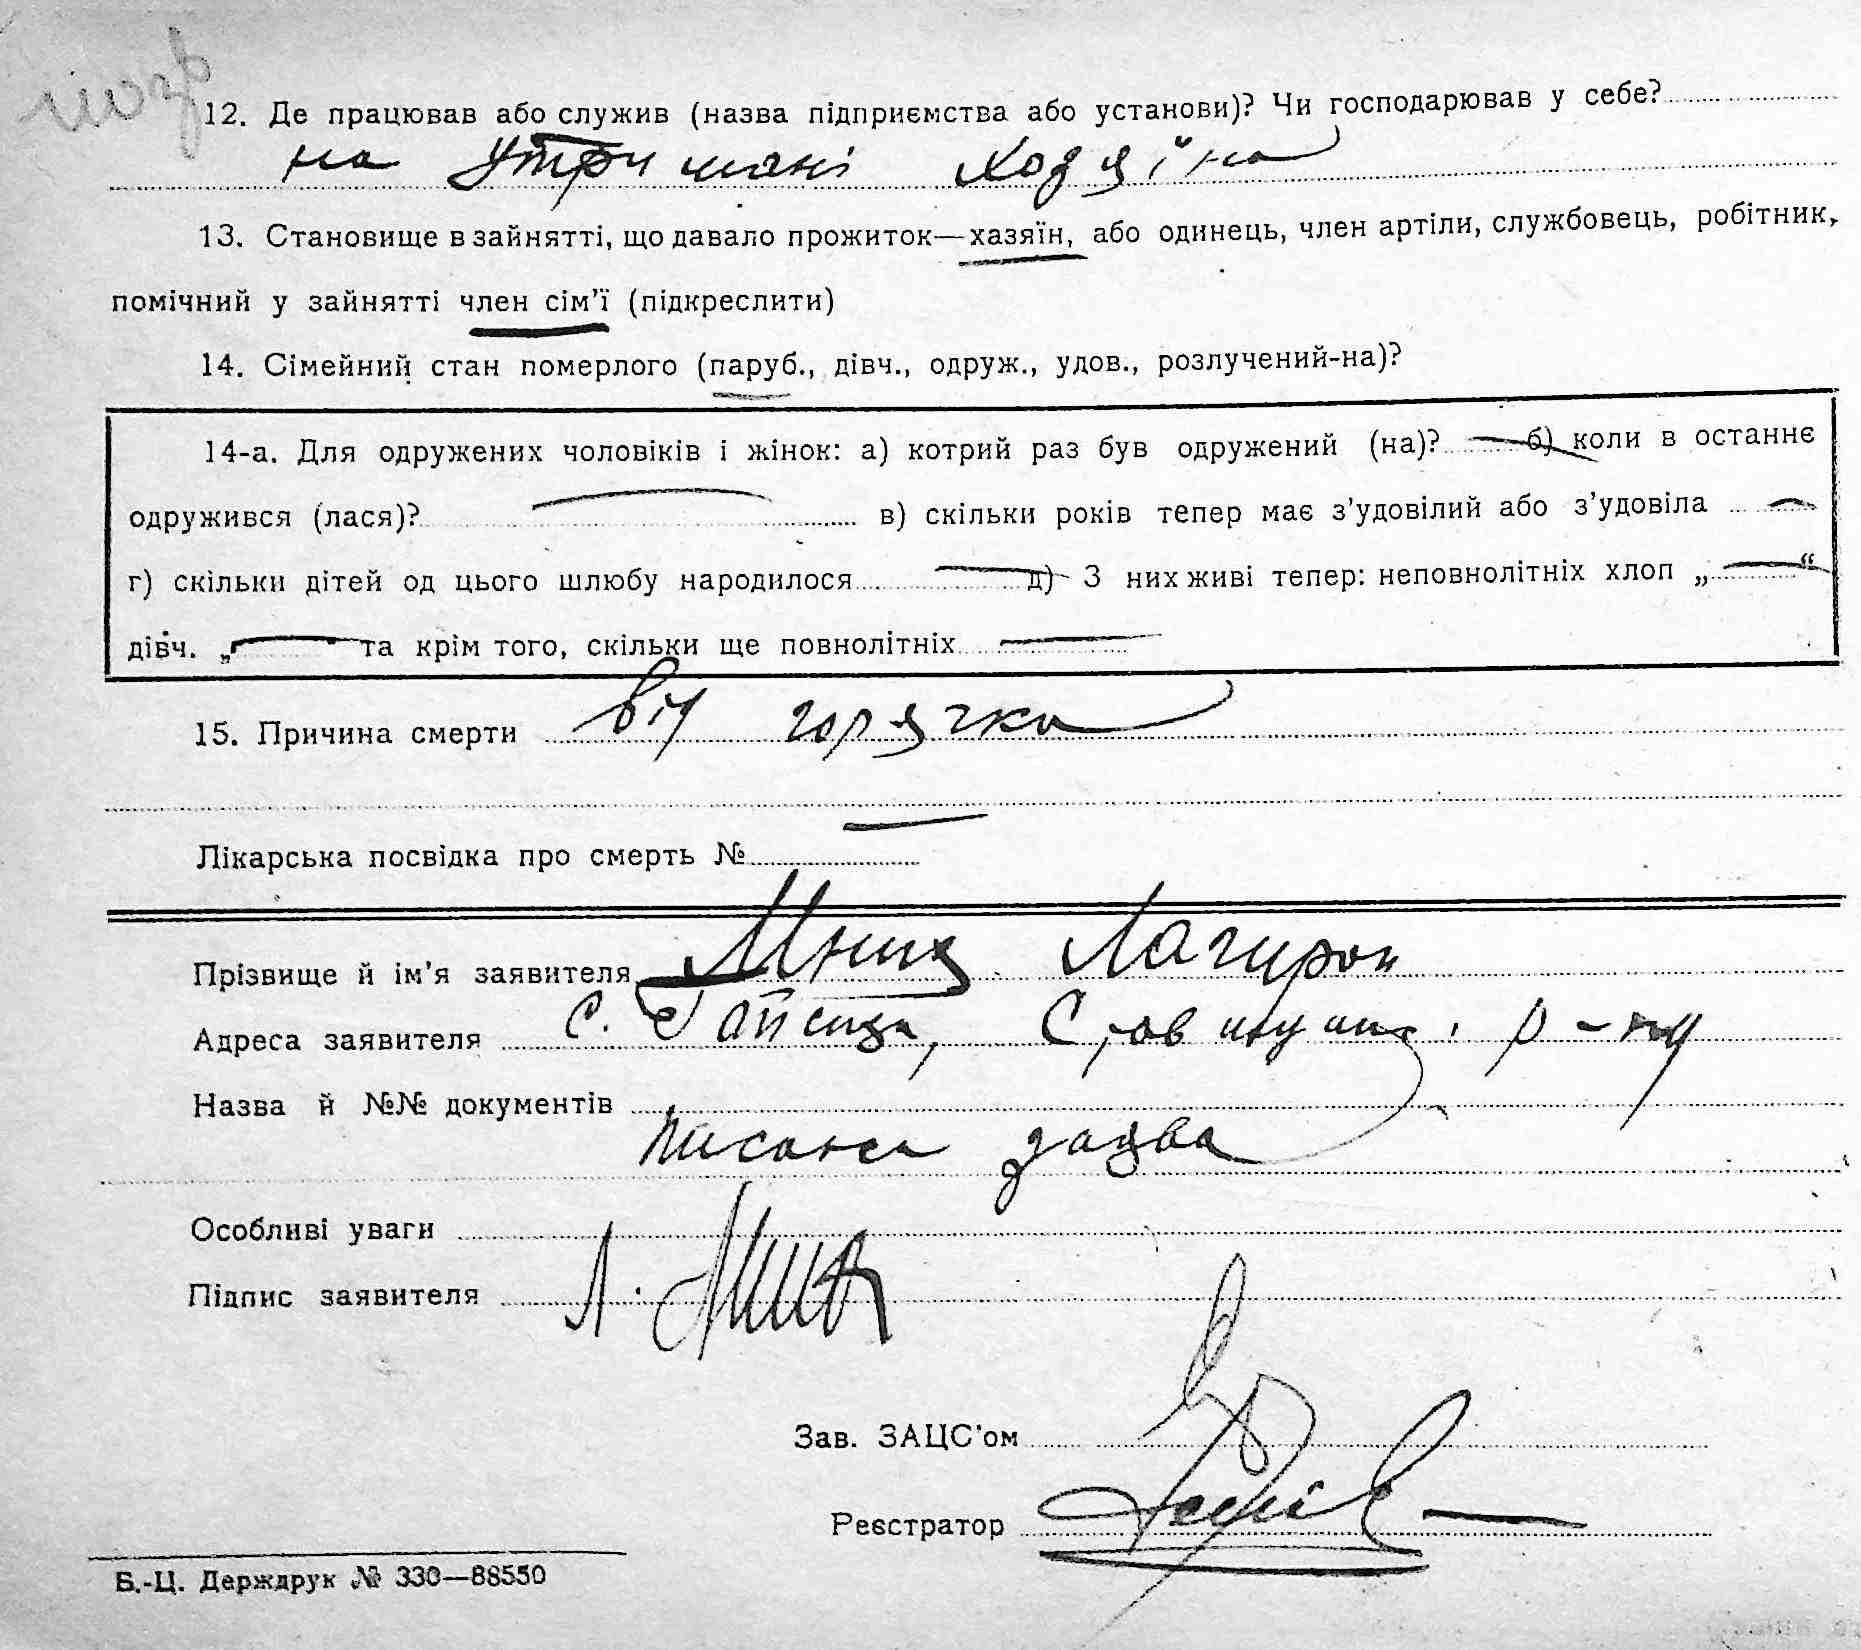 12. Де працював або служив (назва підприємства або установи)? Чи господарював у себе?
на утримані ходяїна
13. Становище в зайнятті, що давало прожиток—хазяїн, або одинець, член артіли, службовець, робітник,
помічний у зайнятті член сім'ї (підкреслити)
14. Сімейний стан померлого (паруб., дівч., одруж., удов., розлучений-на)?
14-а. Для одружених чоловіків і жінок: а) котрий раз був одружений (на)? б) коли в останнє
одружився (лася)? в) скільки років тепер має з'удовілий або з'удовіла
г) скільки дітей од цього шлюбу народилося д) З них живі тепер: неповнолітніх хлоп „ “
дівч. „ та крім того, скільки ще повнолітніх
15. Причина смерти від горячка
Лікарська посвідка про смерть №
Прізвище й ім'я заявителя
Адреса заявителя с. р-ну
Назва й №№ документів
писана заява
Особливі уваги
Підпис заявителя Л.
Зав. ЗАЦС'ом
Реєстратор
Б.-Ц. Держдрук № 330—88550